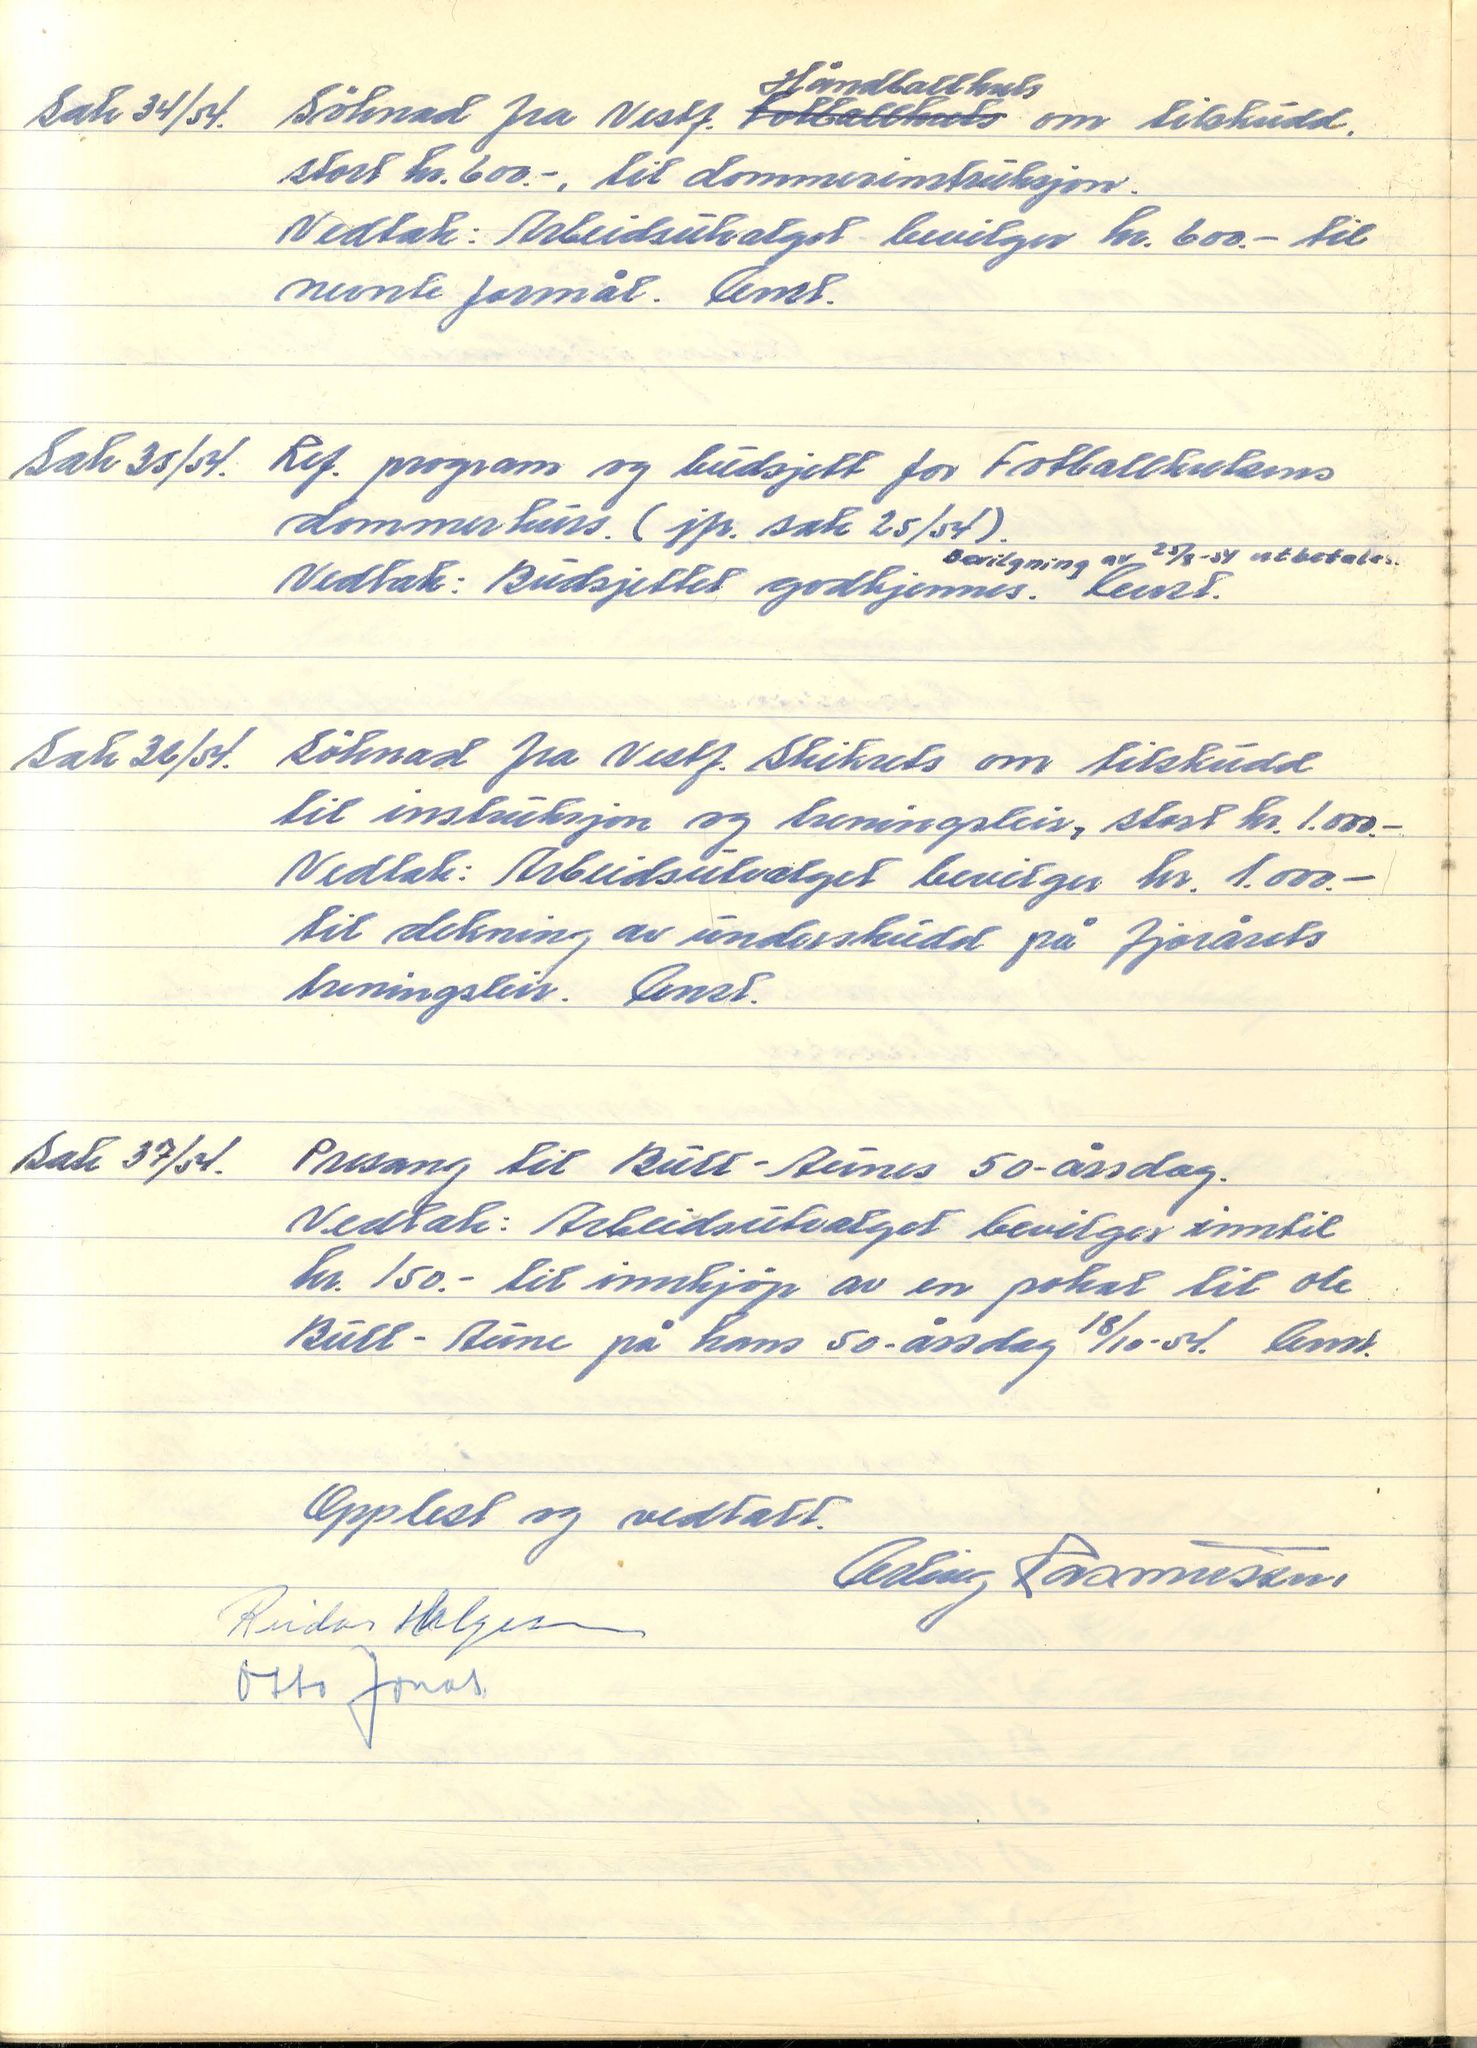 Sak 34/54. Söknad fra Vestf. Håndballkrets om tilskudd,
stort kr. 600.-, til dommerinstruksjon.
Vedtak: Arbeidsutvalget bevilger kr. 600.- til
nevnte formål. Enst.
Sak 35/54. Ref. program og budsjett for Fotballkretsens
dommerkurs. (jfr. sak 25/54).
Bevilgning av 25/8-54 utbetales.
Vedtak: Budsjettet godkjennes. Enst.
Sak 36/54. Söknad fra Vestf. Skikrets om tilskudd
til instruksjon og treningsleir, stort kr. 1.000.-
Vedtak: Arbeidsutvalget bevilger kr. 1.000.-
til dekning av underskudd på fjorårets
treningsleir. Enst.
Sak 37/54. Presang til Büll-Aunes 50-årsdag.
Vedtak: Arbeidsutvalget bevilger inntil
kr. 150.- til innkjöp av en pokal til Ole
Büll-Aune på hans 50-årsdag 18/10-54. Enst.
Opplest og vedtatt.
Erling Rasmussen.
Reidar Holgersen
Otto Jonas